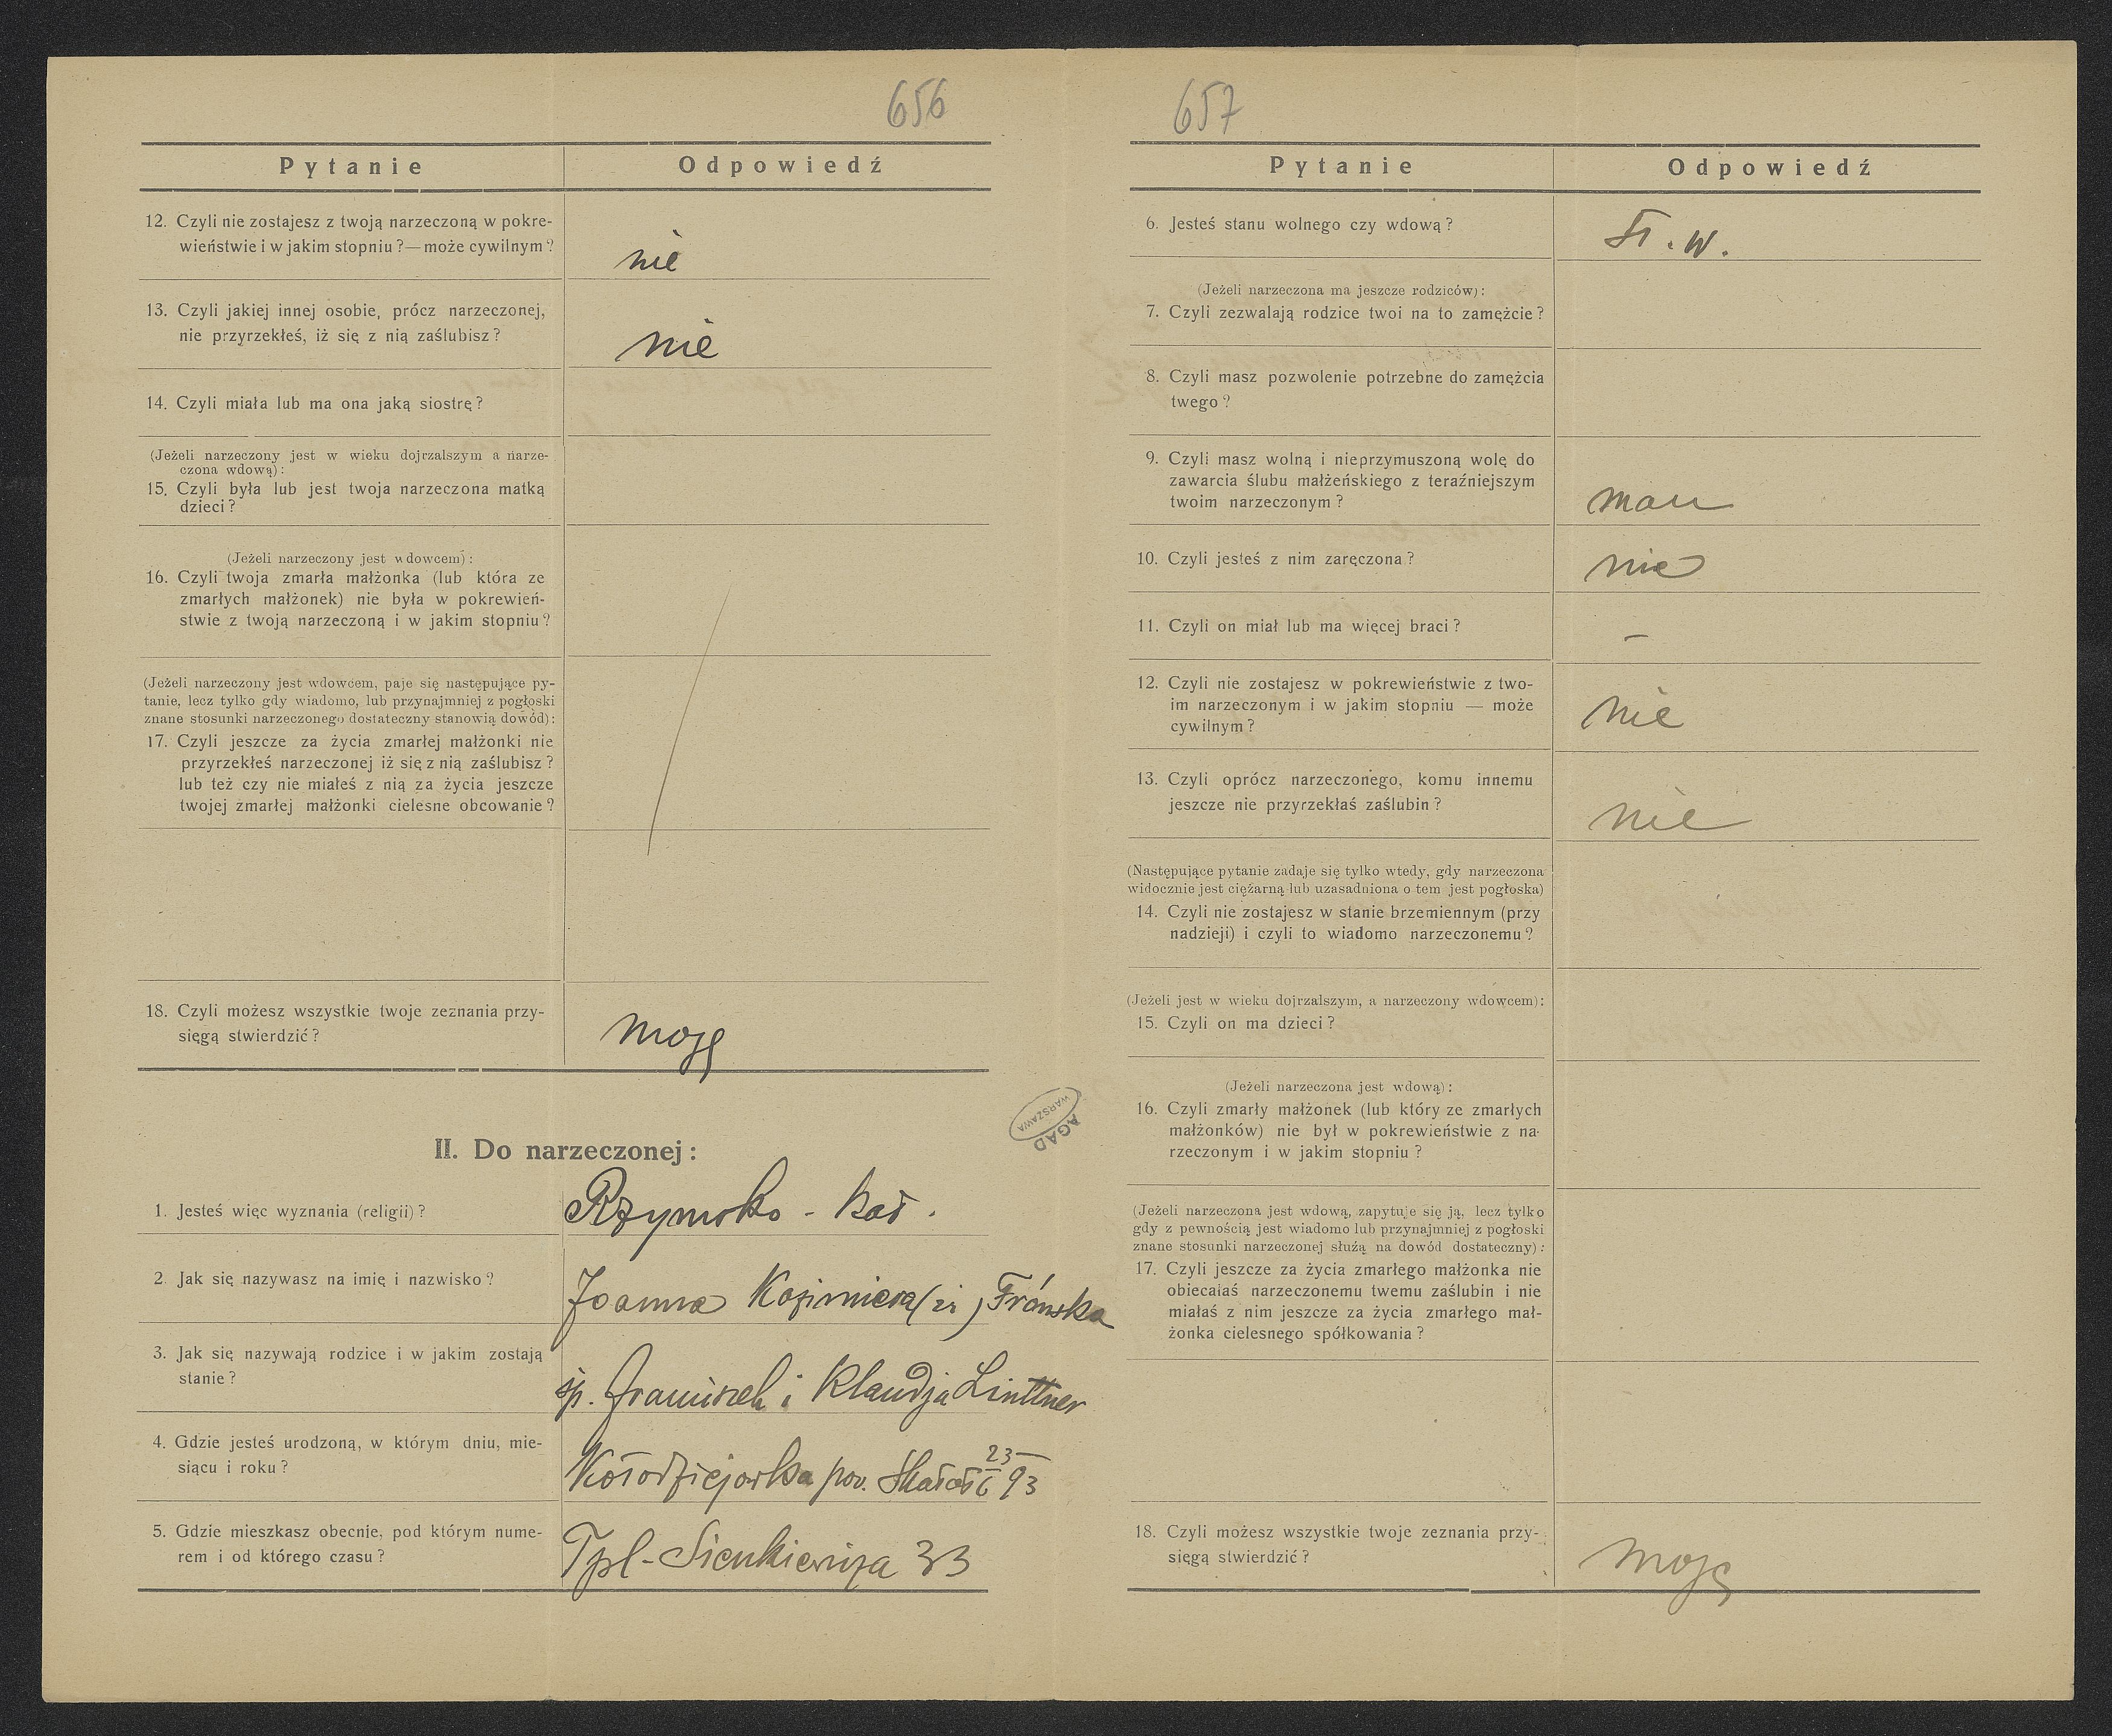 656
Pytanie
Odpowiedź
12. Czyli nie zostajesz z twoją narzeczoną w pokre-
wieństwie i w jakim stopniu?—może cywilnym?
nie
13. Czyli jakiej innej osobie, prócz narzeczonej,
nie przyrzekłeś, iż się z nią zaślubisz?
nie
14. Czyli miała lub ma ona jaką siostrę?
(Jeżeli narzeczony jest w wieku dojrzalszym a narze-
czona wdową):
15. Czyli była lub jest twoja narzeczona matką
dzieci?
(Jeżeli narzeczony jest wdowcem):
16. Czyli twoja zmarła małżonka (lub która ze
zmarłych małżonek) nie była w pokrewień-
stwie z twoją narzeczoną i w jakim stopniu?
(Jeżeli narzeczony jest wdowcem, paje się następujące py-
tanie, lecz tylko gdy wiadomo, lub przynajmniej z pogłoski
znane stosunki narzeczonego dostateczny stanowią dowód):
17. Czyli jeszcze za życia zmarłej małżonki nie
przyrzekłeś narzeczonej iż się z nią zaślubisz?
lub też czy nie miałeś z nią za życia jeszcze
twojej zmarłej małżonki cielesne obcowanie?
18. Czyli możesz wszystkie twoje zeznania przy-
sięgą stwierdzić?
mogę
II. Do narzeczonej:
1. Jesteś więc wyznania (religii)?
Rzymsko - kat.
2. Jak się nazywasz na imię i nazwisko?
Joanna Kazimiera (im) Frónska
3. Jak się nazywają rodzice i w jakim zostają
stanie?
śp. Franciszek i Klaudja Linttner
4. Gdzie jesteś urodzoną, w którym dniu, mie-
siącu i roku?
Kołodziejówka pow. Skałat 23/6 93
5. Gdzie mieszkasz obecnie, pod którym nume-
rem i od którego czasu?
Tpl - Sienkiewicza 33
AGAD
WARSZAWA
657
Pytanie
Odpowiedź
6. Jesteś stanu wolnego czy wdową?
St. w.
(Jeżeli narzeczona ma jeszcze rodziców):
7. Czyli zezwalają rodzice twoi na to zamężcie?
8. Czyli masz pozwolenie potrzebne do zamężcia
twego?
9. Czyli masz wolną i nieprzymuszoną wolę do
zawarcia ślubu małżeńskiego z teraźniejszym
twoim narzeczonym?
mam
10. Czyli jesteś z nim zaręczona?
nie
11. Czyli on miał lub ma więcej braci?
–
12. Czyli nie zostajesz w pokrewieństwie z two-
im narzeczonym i w jakim stopniu — może
cywilnym?
nie
13. Czyli oprócz narzeczonego, komu innemu
jeszcze nie przyrzekłaś zaślubin?
nie
(Następujące pytanie zadaje się tylko wtedy, gdy narzeczona
widocznie jest ciężarną lub uzasadniona o tem jest pogłoska)
14. Czyli nie zostajesz w stanie brzemiennym (przy
nadzieji) i czyli to wiadomo narzeczonemu?
(Jeżeli jest w wieku dojrzalszym, a narzeczony wdowcem):
15. Czyli on ma dzieci?
(Jeżeli narzeczona jest wdową):
16. Czyli zmarły małżonek (lub który ze zmarłych
małżonków) nie był w pokrewieństwie z na-
rzeczonym i w jakim stopniu?
(Jeżeli narzeczona jest wdową, zapytuje się ją, lecz tylko
gdy z pewnością jest wiadomo lub przynajmniej z pogłoski
znane stosunki narzeczonej służą na dowód dostateczny):
17. Czyli jeszcze za życia zmarłego małżonka nie
obiecałaś narzeczonemu twemu zaślubin i nie
miałaś z nim jeszcze za życia zmarłego mał-
żonka cielesnego spółkowania?
18. Czyli możesz wszystkie twoje zeznania przy-
sięgą stwierdzić?
mogę